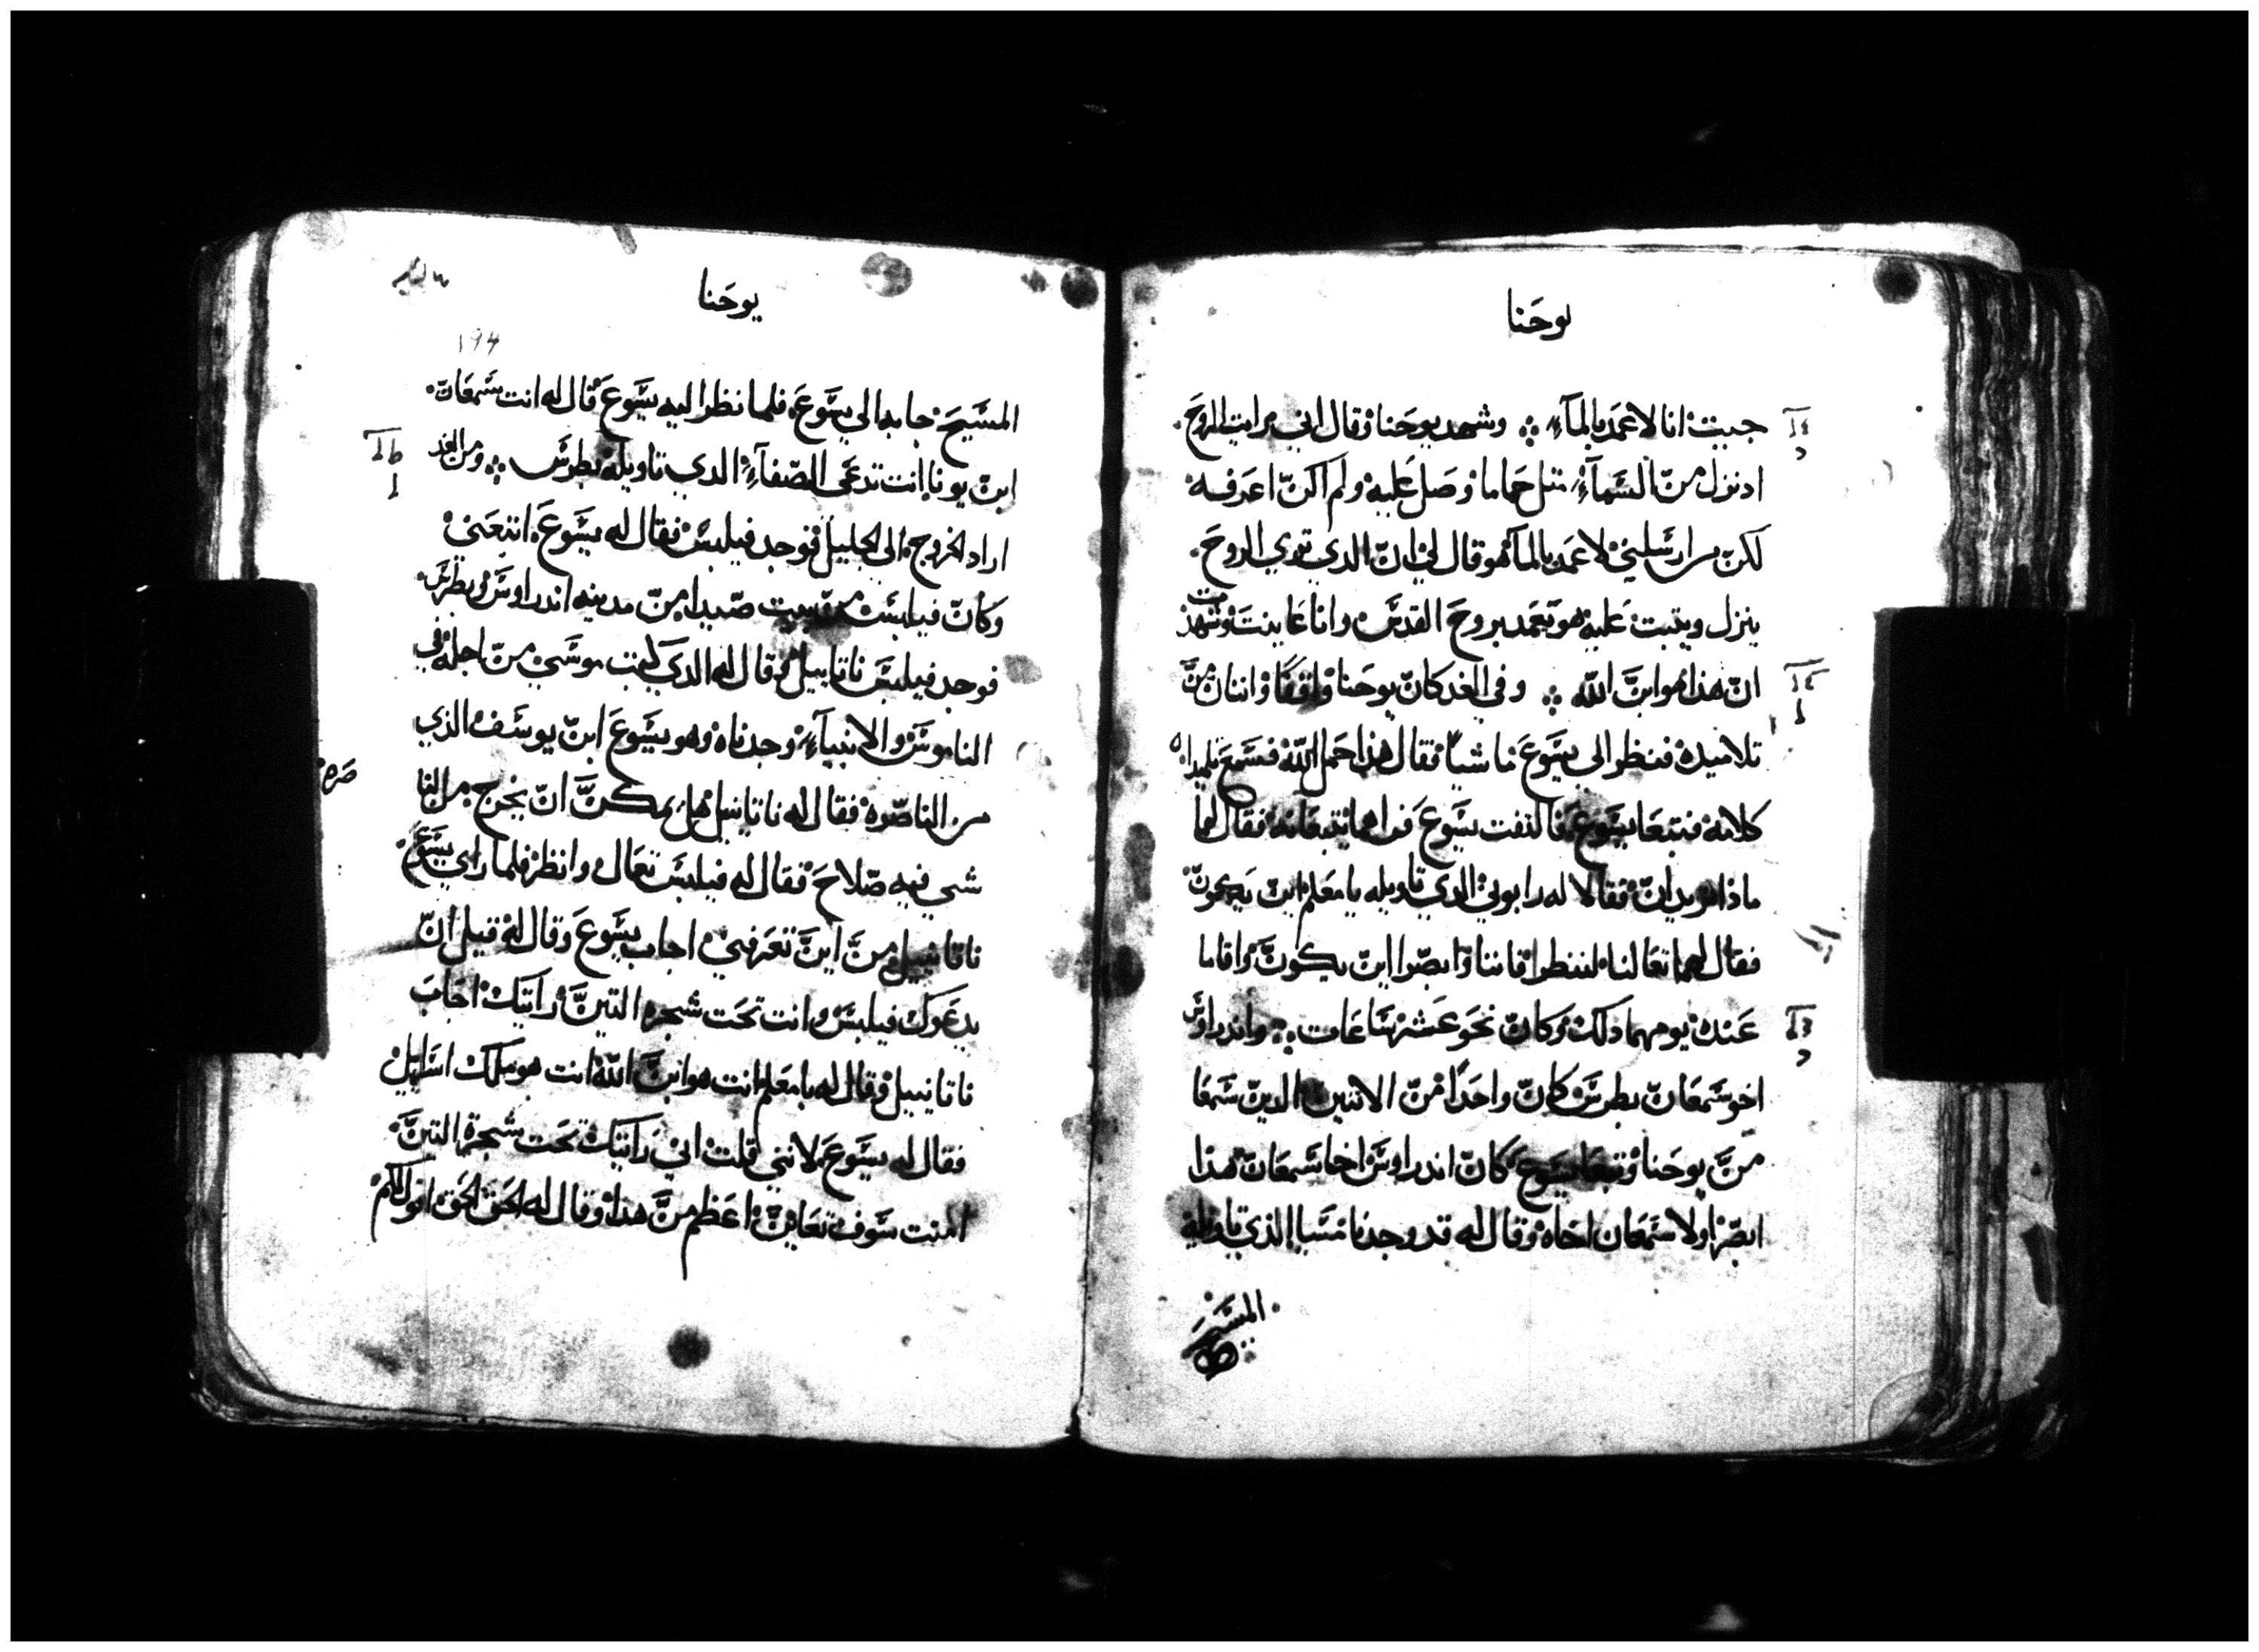 يوحنا
جييت انا لاعمد بالمآء وشهد يوحنا وقال اني رايت الروح
اد نزل من السمآء متل حماما وصل عليه ولم اكن اعرفه
لكن من ارسلني لاعمد بالمآ هو قال لي ان الدي تري الروح
ينزل ويتبت عليه هو يعمد بروح القدس وانا عاينت وشهدت
ان هذا هو ابن الله وفي الغد كان يوحنا واقفا واتنان من
تلاميده فنظر الي يسوع ماشيا فقال هذا حمل الله فسمع تلميداه
كلامه فتبعا يسوع فالتفت يسوع فراهما يتبعانه فقال لهما
ماذا تريدان فقالا له رابوني الدي تاويله يا معلم اين يكون
فقال لهما تعالنا لننظرا فاتيا وابصرا اين يكون واقاما
عنده يومهما دلك وكان نحو عشر ساعات واندراوس
اخو سمعان بطرس كان واحدا من الاتنين الدين سمعا
من يوحنا وتبعا يسوع كان اندراوس اخا سمعان هذا
ابصر اولا سمعان اخاه وقال له قد وجدنا مسيا الذي تاويله
المسيح
يوحنا
194
المسيح جا به الي يسوع فلما نظر اليه يسوع قال له انت سمعان
ابن يونا انت تدعى الصفاء الدي تاويله بطرس ومن الغد
اراد الخروج الى الجليل فوجد فيلبس فقال له يسوع اتبعني
وكان فيلبس من بيت صيدا من مدينه اندراوس وبطرس
فوجد فيلبس ناتانييل وقال له الدي كتب موسي من اجله في
الناموس والانبياء وجدناه وهو يسوع ابن يوسف الذي
من الناصره فقال له ناتانييل هل يمكن ان يخرج من النا
صره
شي فيه صلاح فقال له فيلبس تعال وانظر فلما راي يسوع
ناتانييل من اين تعرفني اجاب يسوع وقال له قبل ان
يدعوك فيلبس وانت تحت شجره التين رايتك اجاب
ناتانييل وقال له يا معلم انت هو ابن الله انت هو ملك اسرايل
فقال له يسوع لانني قلت اني رايتك تحت شجرة التين
امنت سوف تعاين اعظم من هذا وقال له الحق الحق اقول لكم